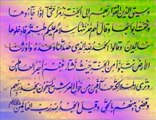 وسيق الذين اتقوا ربهم إلى الجنة زمرا حتى إذا جاءوها
وفتحت أبوابها وقال لهم خزنتها سلام عليكم طبتم فادخلوها
خالدين وقالوا الحمد لله الذي صدقنا وعده وأورثنا
الأرض نتبوأ من الجنة حيث نشاء فنعم أجر العاملين
وترى الملائكة حافين من حول العرش يسبحون بحمد ربهم
وقضي بينهم بالحق وقيل الحمد لله رب العالمين